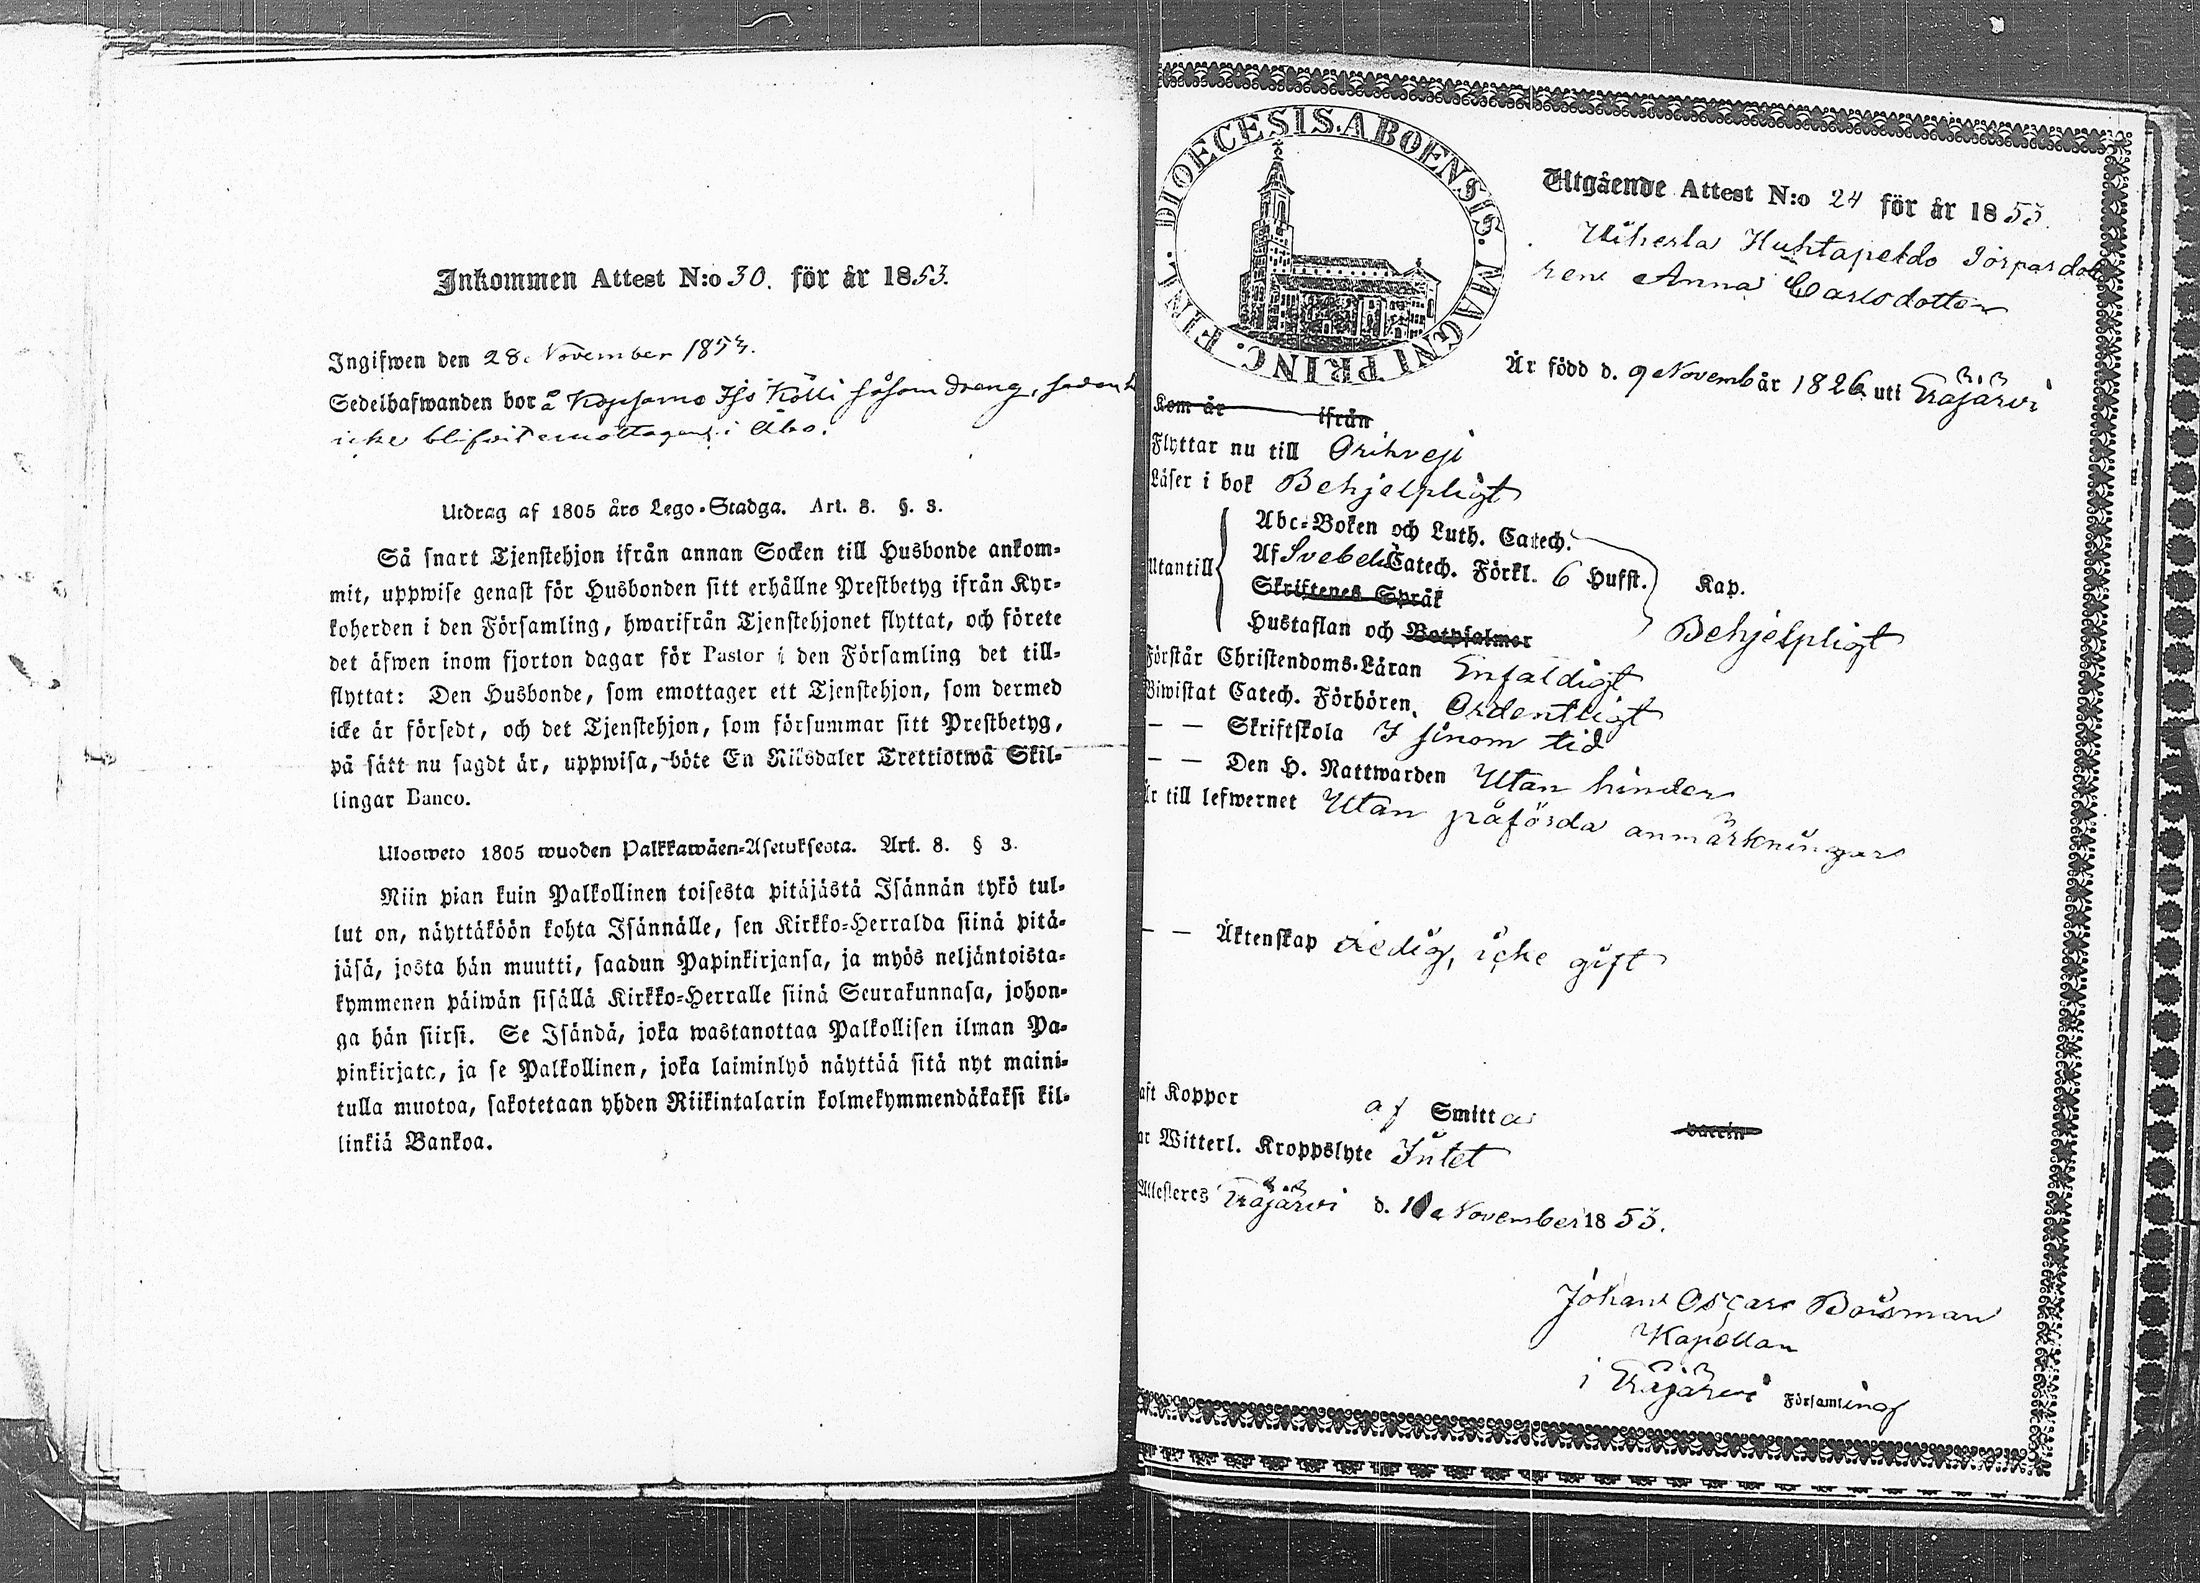 Inkommen Attest N:o 30. för år 1853.
Ingifwen den 28 November 1853.
Sedelhafwanden bor å Kopsamo Iso Kölli såsom dräng, sedan h
icke blifvit emottagen i Åbo.
Utdrag af 1805 års Lego-Stadga. Art. 8. §. 3.
Så snart Tjenstehjon ifrån annan Socken till Husbonde ankom-
mit, uppwise genast för Husbonden sitt erhållne Prestbetyg ifrån Kyr-
koherden i den Församling, hwarifrån Tjenstehjonet flyttat, och förete
det äfwen inom fjorton dagar för Pastor i den Församling det till-
flyttat: Den Husbonde, som emottager ett Tjenstehjon, som dermed
icke är försedt, och det Tjenstehjon, som försummar sitt Prestbetyg,
på sätt nu sagdt är, uppwisa, böte En Riksdaler Trettiotwå Skil-
lingar Banco.
Ulosweto 1805 wuoden Palkkawäen-Asetuksesta. Art. 8. § 3.
Niin pian kuin Palkollinen toisesta pitäjästä Isännän tykö tul-
lut on, näyttäköön kohta Isännälle, sen Kirkko-Herralda siinä pitä-
jäsä, josta hän muutti, saadun Papinkirjansa, ja myös neljäntoista-
kymmenen päiwän sisällä Kirkko-Herralle siinä Seurakunnasa, johon-
ga hän siirsi. Se Isändä, joka wastanottaa Palkollisen ilman Pa-
pinkirjata, ja se Palkollinen, joka laiminlyö näyttää sitä nyt maini-
tulla muotoa, sakotetaan yhden Riikintalarin kolmekymmendäkaksi kil-
linkiä Bankoa.
DIOECESIS. ABOENSIS. MAGNI PRINC. FINL.
Utgående Attest N:o 24 för år 1853.
Uiherla Huhtapeldo Torpardot
ren Anna Carlsdotter
Är född d. 9 Novemb år 1826 uti Eräjärvi
Kom år ifrån
Flyttar nu till Orihvesi
Läser i bok Behjelpligt
Abc-Boken och Luth. Catech.
Utantill Af Svebeli Catech. Förkl. 6 Hufst. Kap.
Skriftenes Språk
Hustaflan och Botpsalmer Behjelpligt
Förstår Christendoms-Läran Enfaldigt
Biwistat Catech. Förhören Ordentligt
— — Skriftskola I sinom tid
— — Den H. Nattwarden Utan hinder
Är till lefwernet Utan påförda anmärkningar
— — Äktenskap Ledig, icke gift
aft Koppor af Smitta vaccin
ar Witterl. Kroppslyte Intet
Attesteres Eräjärvi d. November 1853.
Johan Oscar Boisman
Kapellan
i Eräjärvi Församling